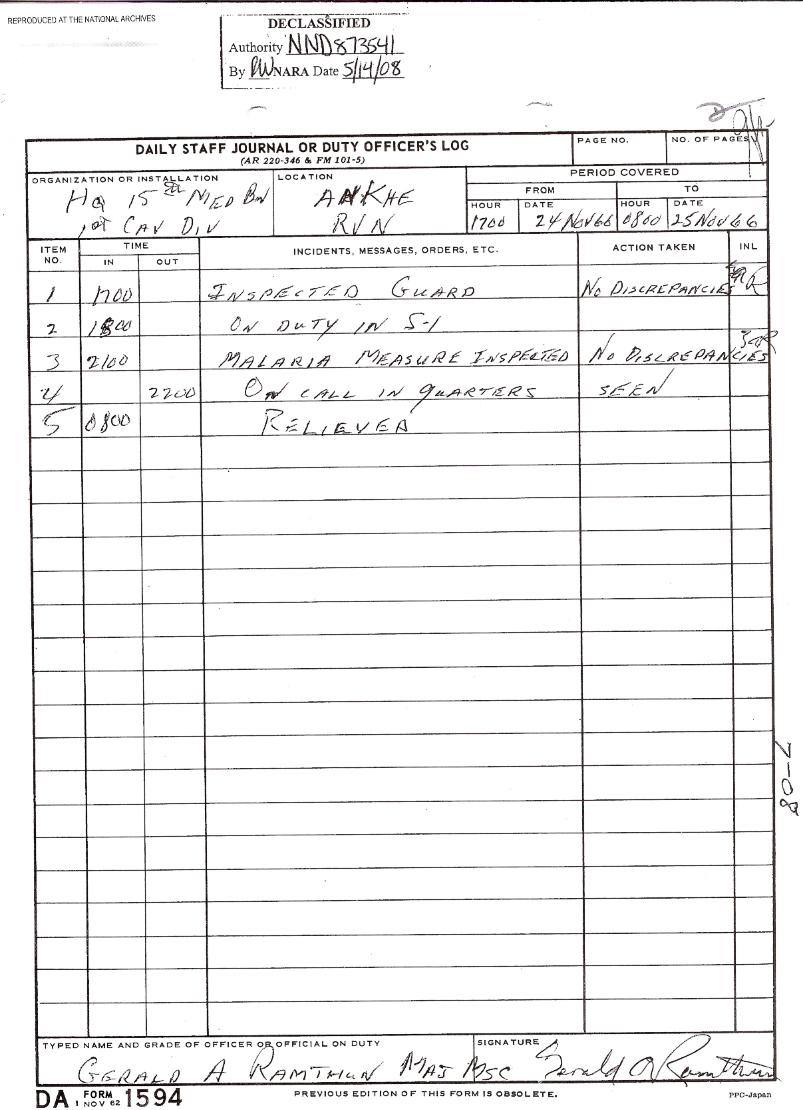 REPRODUCED AT THE NATIONAL ARCHIVES
DECLASSIFIED
Authority NND873541
By NARA Date 5/14/08
DAILY STAFF JOURNAL OR DUTY OFFICER'S LOG
(AR 220-346 & FM 101-5)
PAGE NO.
NO. OF PAGES
ORGANIZATION OR INSTALLATION
HQ 15th MED BN
1st CAV DIV
LOCATION
ANKHE
RVN
PERIOD COVERED
FROM
TO
HOUR
DATE
HOUR
DATE
1700
24 NOV 66
0800
25 NOV 66
ITEM NO.
TIME
IN
OUT
INCIDENTS, MESSAGES, ORDERS, ETC.
ACTION TAKEN
INL
1 1700 INSPECTED GUARD NO DISCREPANCIES
2 1800 ON DUTY IN S-1
3 2100 MALARIA MEASURE INSPECTED NO DISCREPANCIES
4 2200 ON CALL IN QUARTERS SEEN
5 0800 RELIEVED
TYPED NAME AND GRADE OF OFFICER OR OFFICIAL ON DUTY
GERALD A RAMTHUN MAJ MSC
SIGNATURE
Gerald A Ramthun
DA FORM 1594
1 NOV 62
PREVIOUS EDITION OF THIS FORM IS OBSOLETE.
PPC-Japan